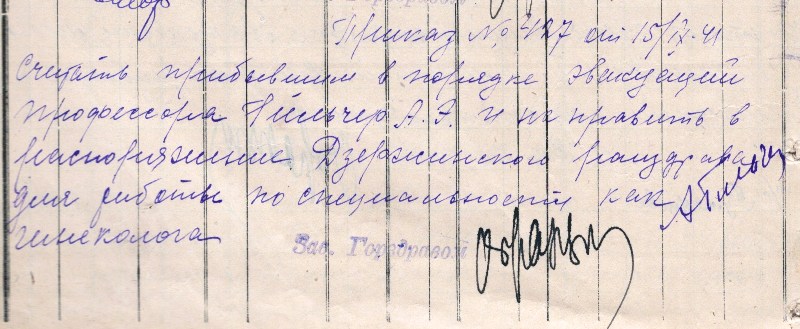 Приказ № 427 от 15/IX-41
Считать прибывшим в порядке эвакуации
профессора Гильчер А.Э. и направить в
распоряжение Дзержинского райздрава
для работы по специальности как
гинеколога
Зав. Горздравом